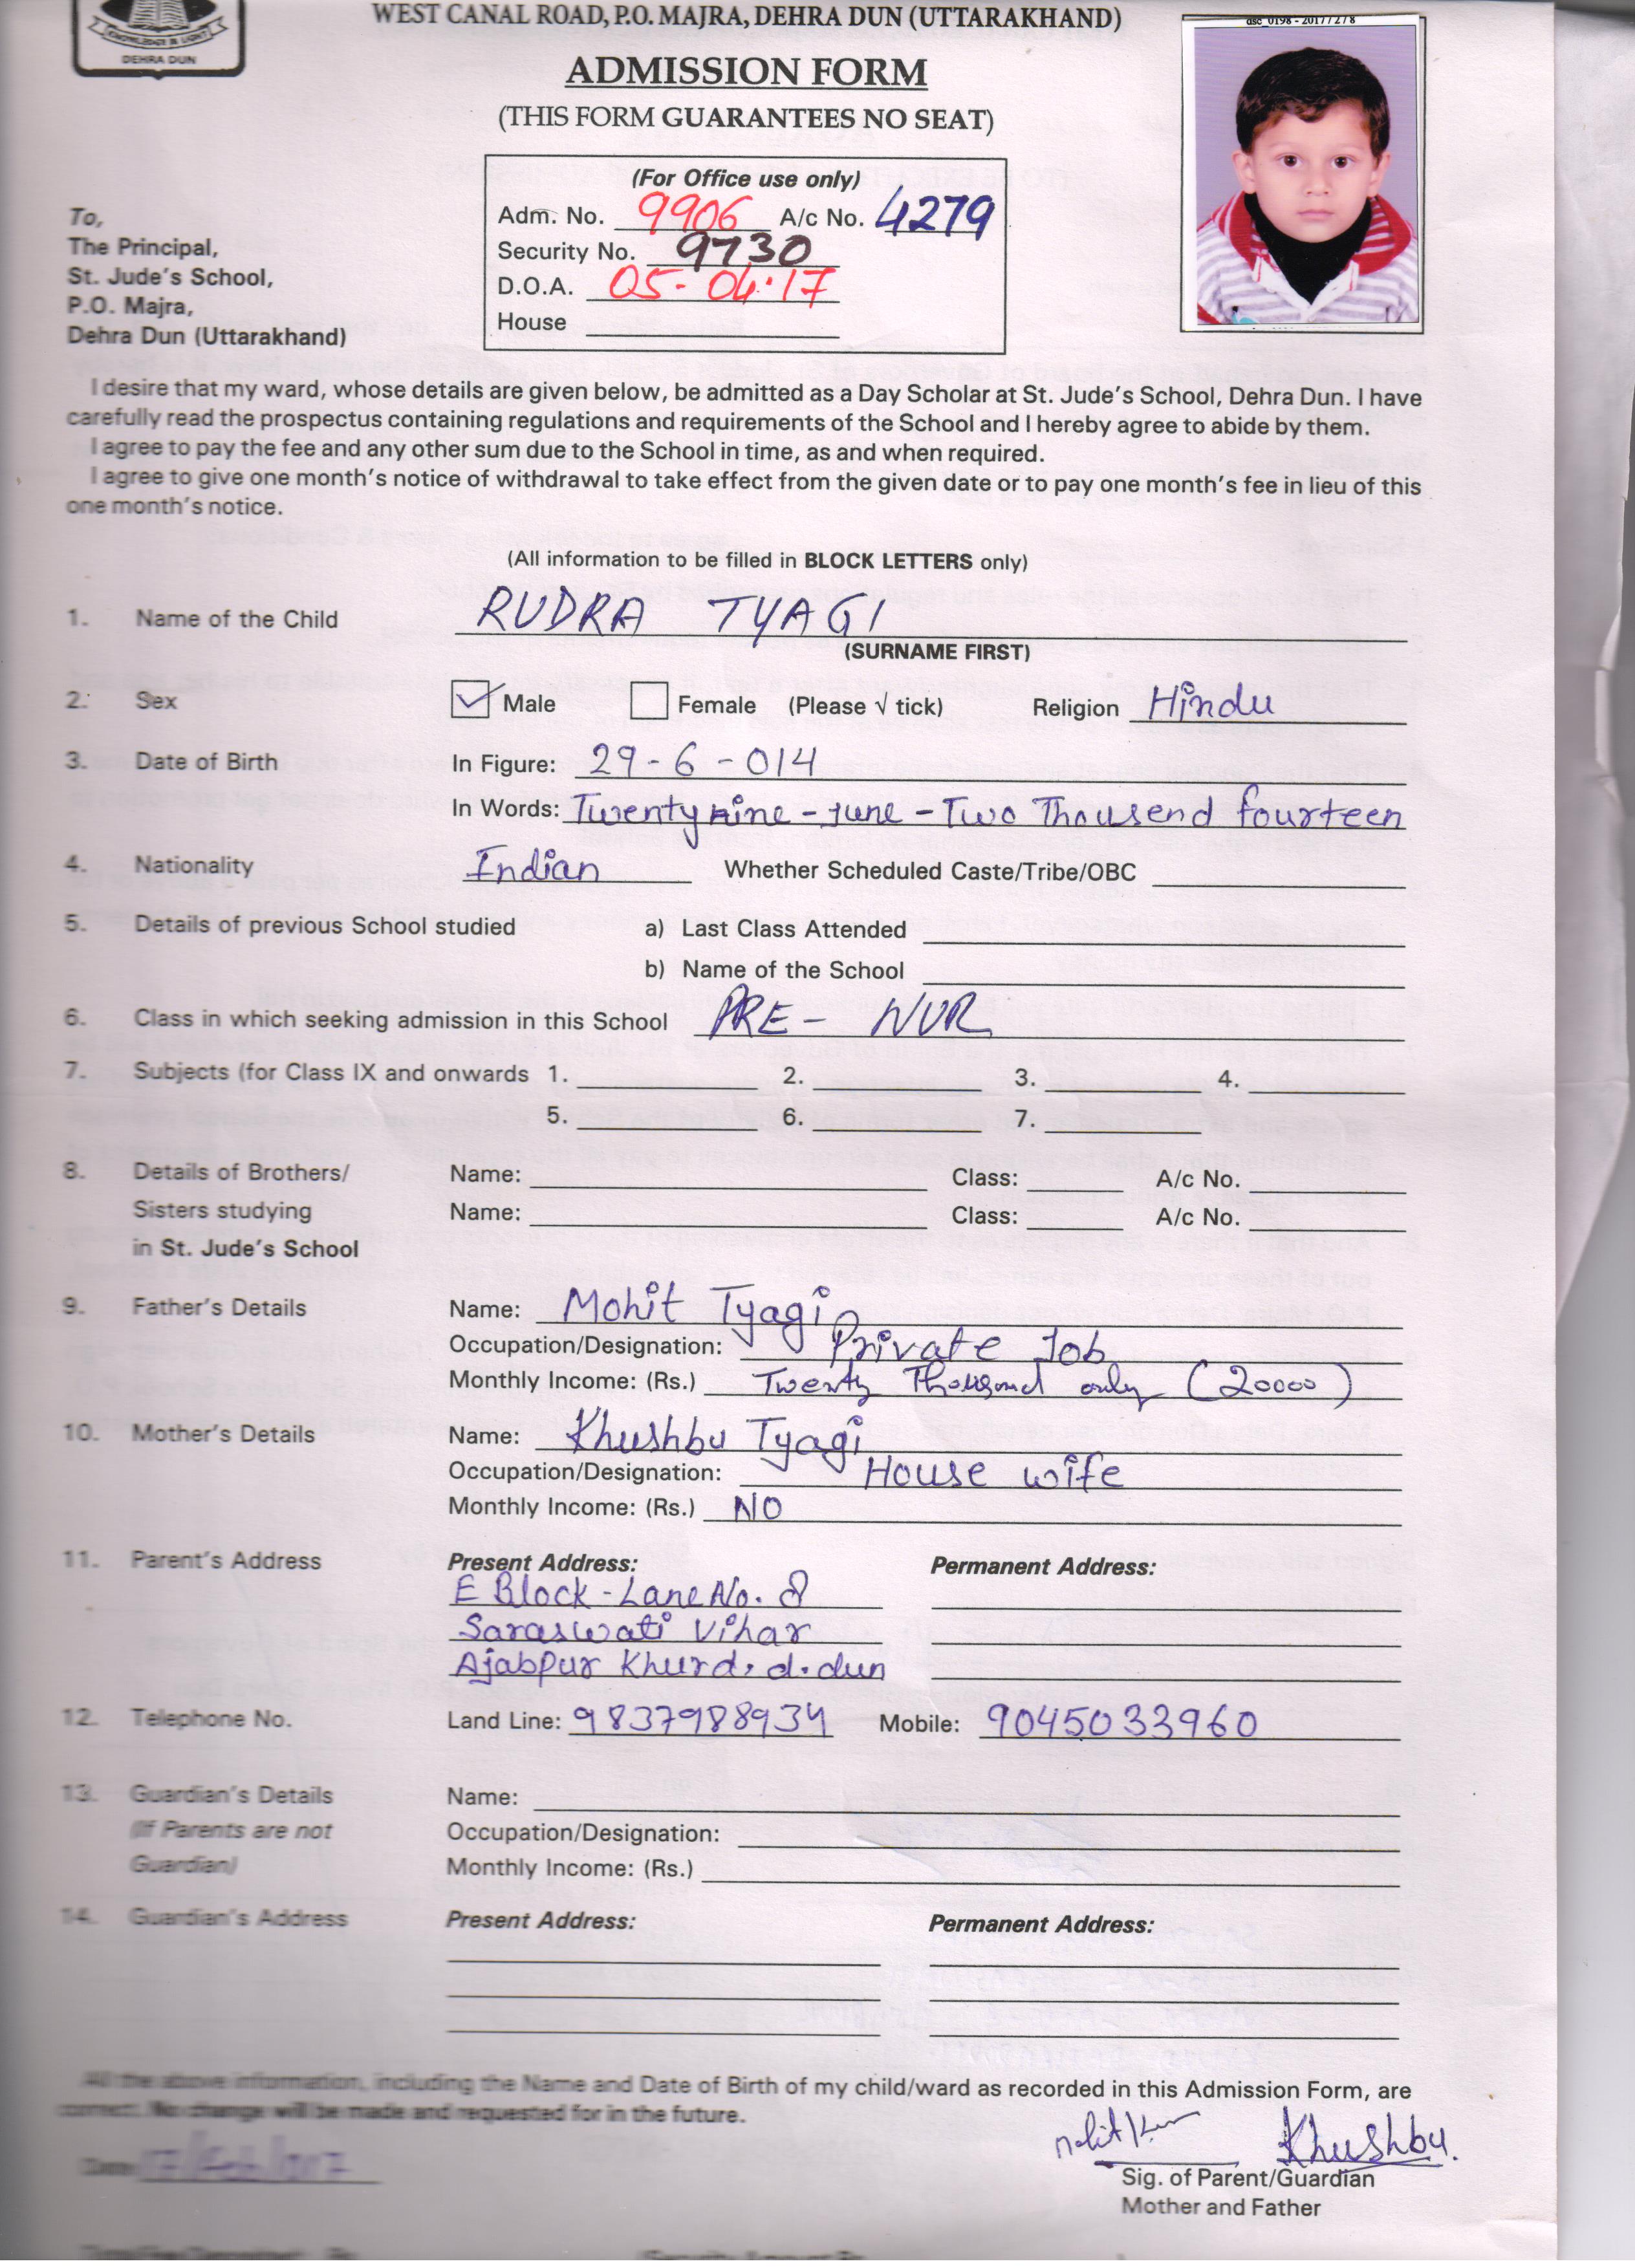 KNOWLEDGE IS LIGHT
DEHRA DUN
WEST CANAL ROAD, P.O. MAJRA, DEHRA DUN (UTTARAKHAND)
dsc_0198 - 2017/2/8
ADMISSION FORM
(THIS FORM GUARANTEES NO SEAT)
(For Office use only)
Adm. No. 9906 A/c No. 4279
Security No. 9730
D.O.A. 05-04-17
House
To,
The Principal,
St. Jude's School,
P.O. Majra,
Dehra Dun (Uttarakhand)
I desire that my ward, whose details are given below, be admitted as a Day Scholar at St. Jude's School, Dehra Dun. I have
carefully read the prospectus containing regulations and requirements of the School and I hereby agree to abide by them.
I agree to pay the fee and any other sum due to the School in time, as and when required.
I agree to give one month's notice of withdrawal to take effect from the given date or to pay one month's fee in lieu of this
one month's notice.
(All information to be filled in BLOCK LETTERS only)
1. Name of the Child RUDRA TYAGI
(SURNAME FIRST)
2. Sex Male Female (Please √ tick) Religion Hindu
3. Date of Birth In Figure: 29-6-014
In Words: Twenty nine - june - Two Thousend fourteen
4. Nationality Indian Whether Scheduled Caste/Tribe/OBC
5. Details of previous School studied a) Last Class Attended
b) Name of the School
6. Class in which seeking admission in this School PRE- NUR
7. Subjects (for Class IX and onwards 1. 2. 3. 4.
5. 6. 7.
8. Details of Brothers/ Name: Class: A/c No.
Sisters studying Name: Class: A/c No.
in St. Jude's School
9. Father's Details Name: Mohit Tyagi
Occupation/Designation: Private Job
Monthly Income: (Rs.) Twenty Thousand only (20000)
10. Mother's Details Name: Khushbu Tyagi
Occupation/Designation: House wife
Monthly Income: (Rs.) NO
11. Parent's Address Present Address: Permanent Address:
E Block - Lane No. 8
Saraswati Vihar
Ajabpur Khurd. d.dun
12. Telephone No. Land Line: 9837988934 Mobile: 9045033960
13. Guardian's Details Name:
(If Parents are not Occupation/Designation:
Guardian) Monthly Income: (Rs.)
14. Guardian's Address Present Address: Permanent Address:
All the above information, including the Name and Date of Birth of my child/ward as recorded in this Admission Form, are
correct. No change will be made and requested for in the future.
Khushbu.
Date
Sig. of Parent/Guardian
Mother and Father